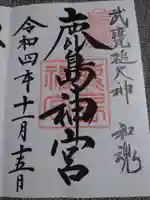 武甕槌大神　和魂
鹿島神宮
令和四年十二月十五日